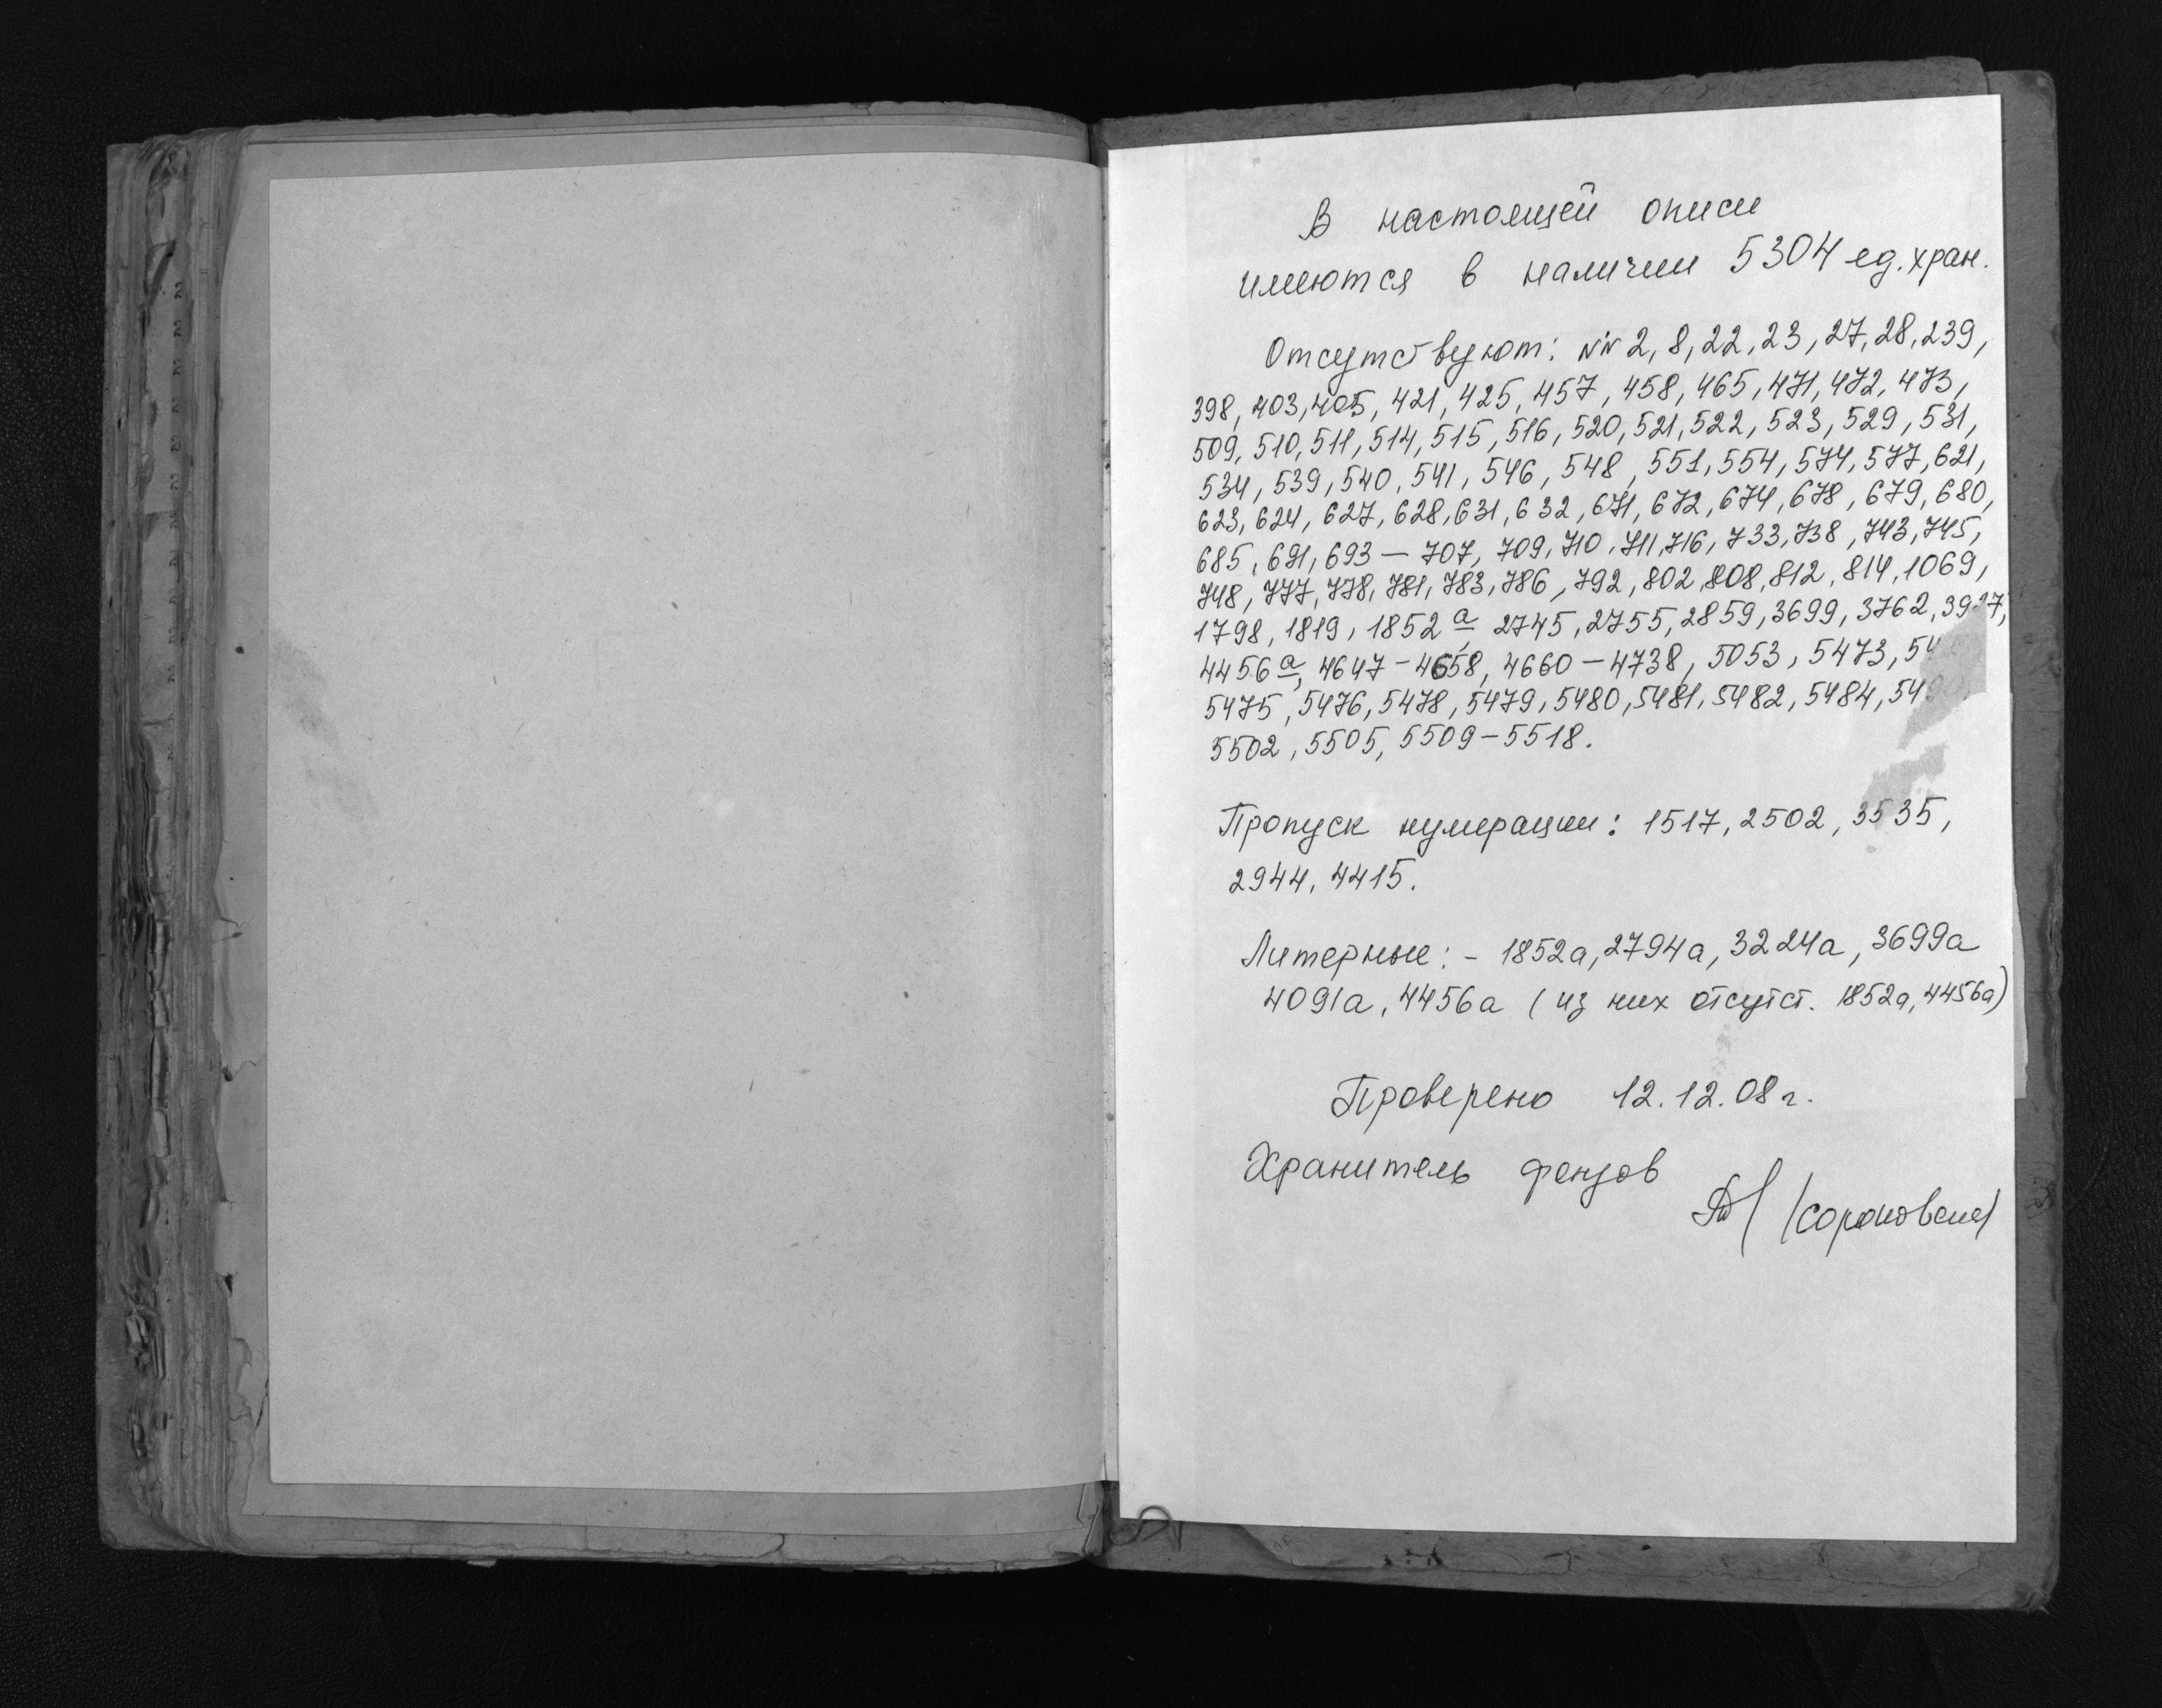 В настоящей описи
имеются в наличии 5304 ед. хран.
Отсутствуют: NN 2, 8, 22, 23, 27, 28, 239,
398, 403, 405, 421, 425, 457, 458, 465, 471, 472, 473,
509, 510, 511, 514, 515, 516, 520, 521, 522, 523, 529, 531,
534, 539, 540, 541, 546, 548, 551, 554, 574, 577, 621,
623, 624, 627, 628, 631, 632, 671, 672, 674, 678, 679, 680,
685, 691, 693 – 707, 709, 710, 711, 716, 733, 738, 743, 745,
748, 777, 778, 781, 783, 786, 792, 802, 808, 812, 814, 1069,
1798, 1819, 1852а, 2745, 2755, 2859, 3699, 3762,
4456а, 4647 – 4658, 4660 – 4738, 5053, 5473,
5475, 5476, 5478, 5479, 5480, 5481, 5482, 5484,
5502, 5505, 5509 – 5518.
Пропуск нумерации: 1517, 2502, 3535,
2944, 4415.
Литерные: - 1852а, 2794а, 3224а, 3699а
4091а, 4456а (из них отсутст. 1852а, 4456а)
Проверено 12.12.08 г.
Хранитель фондов